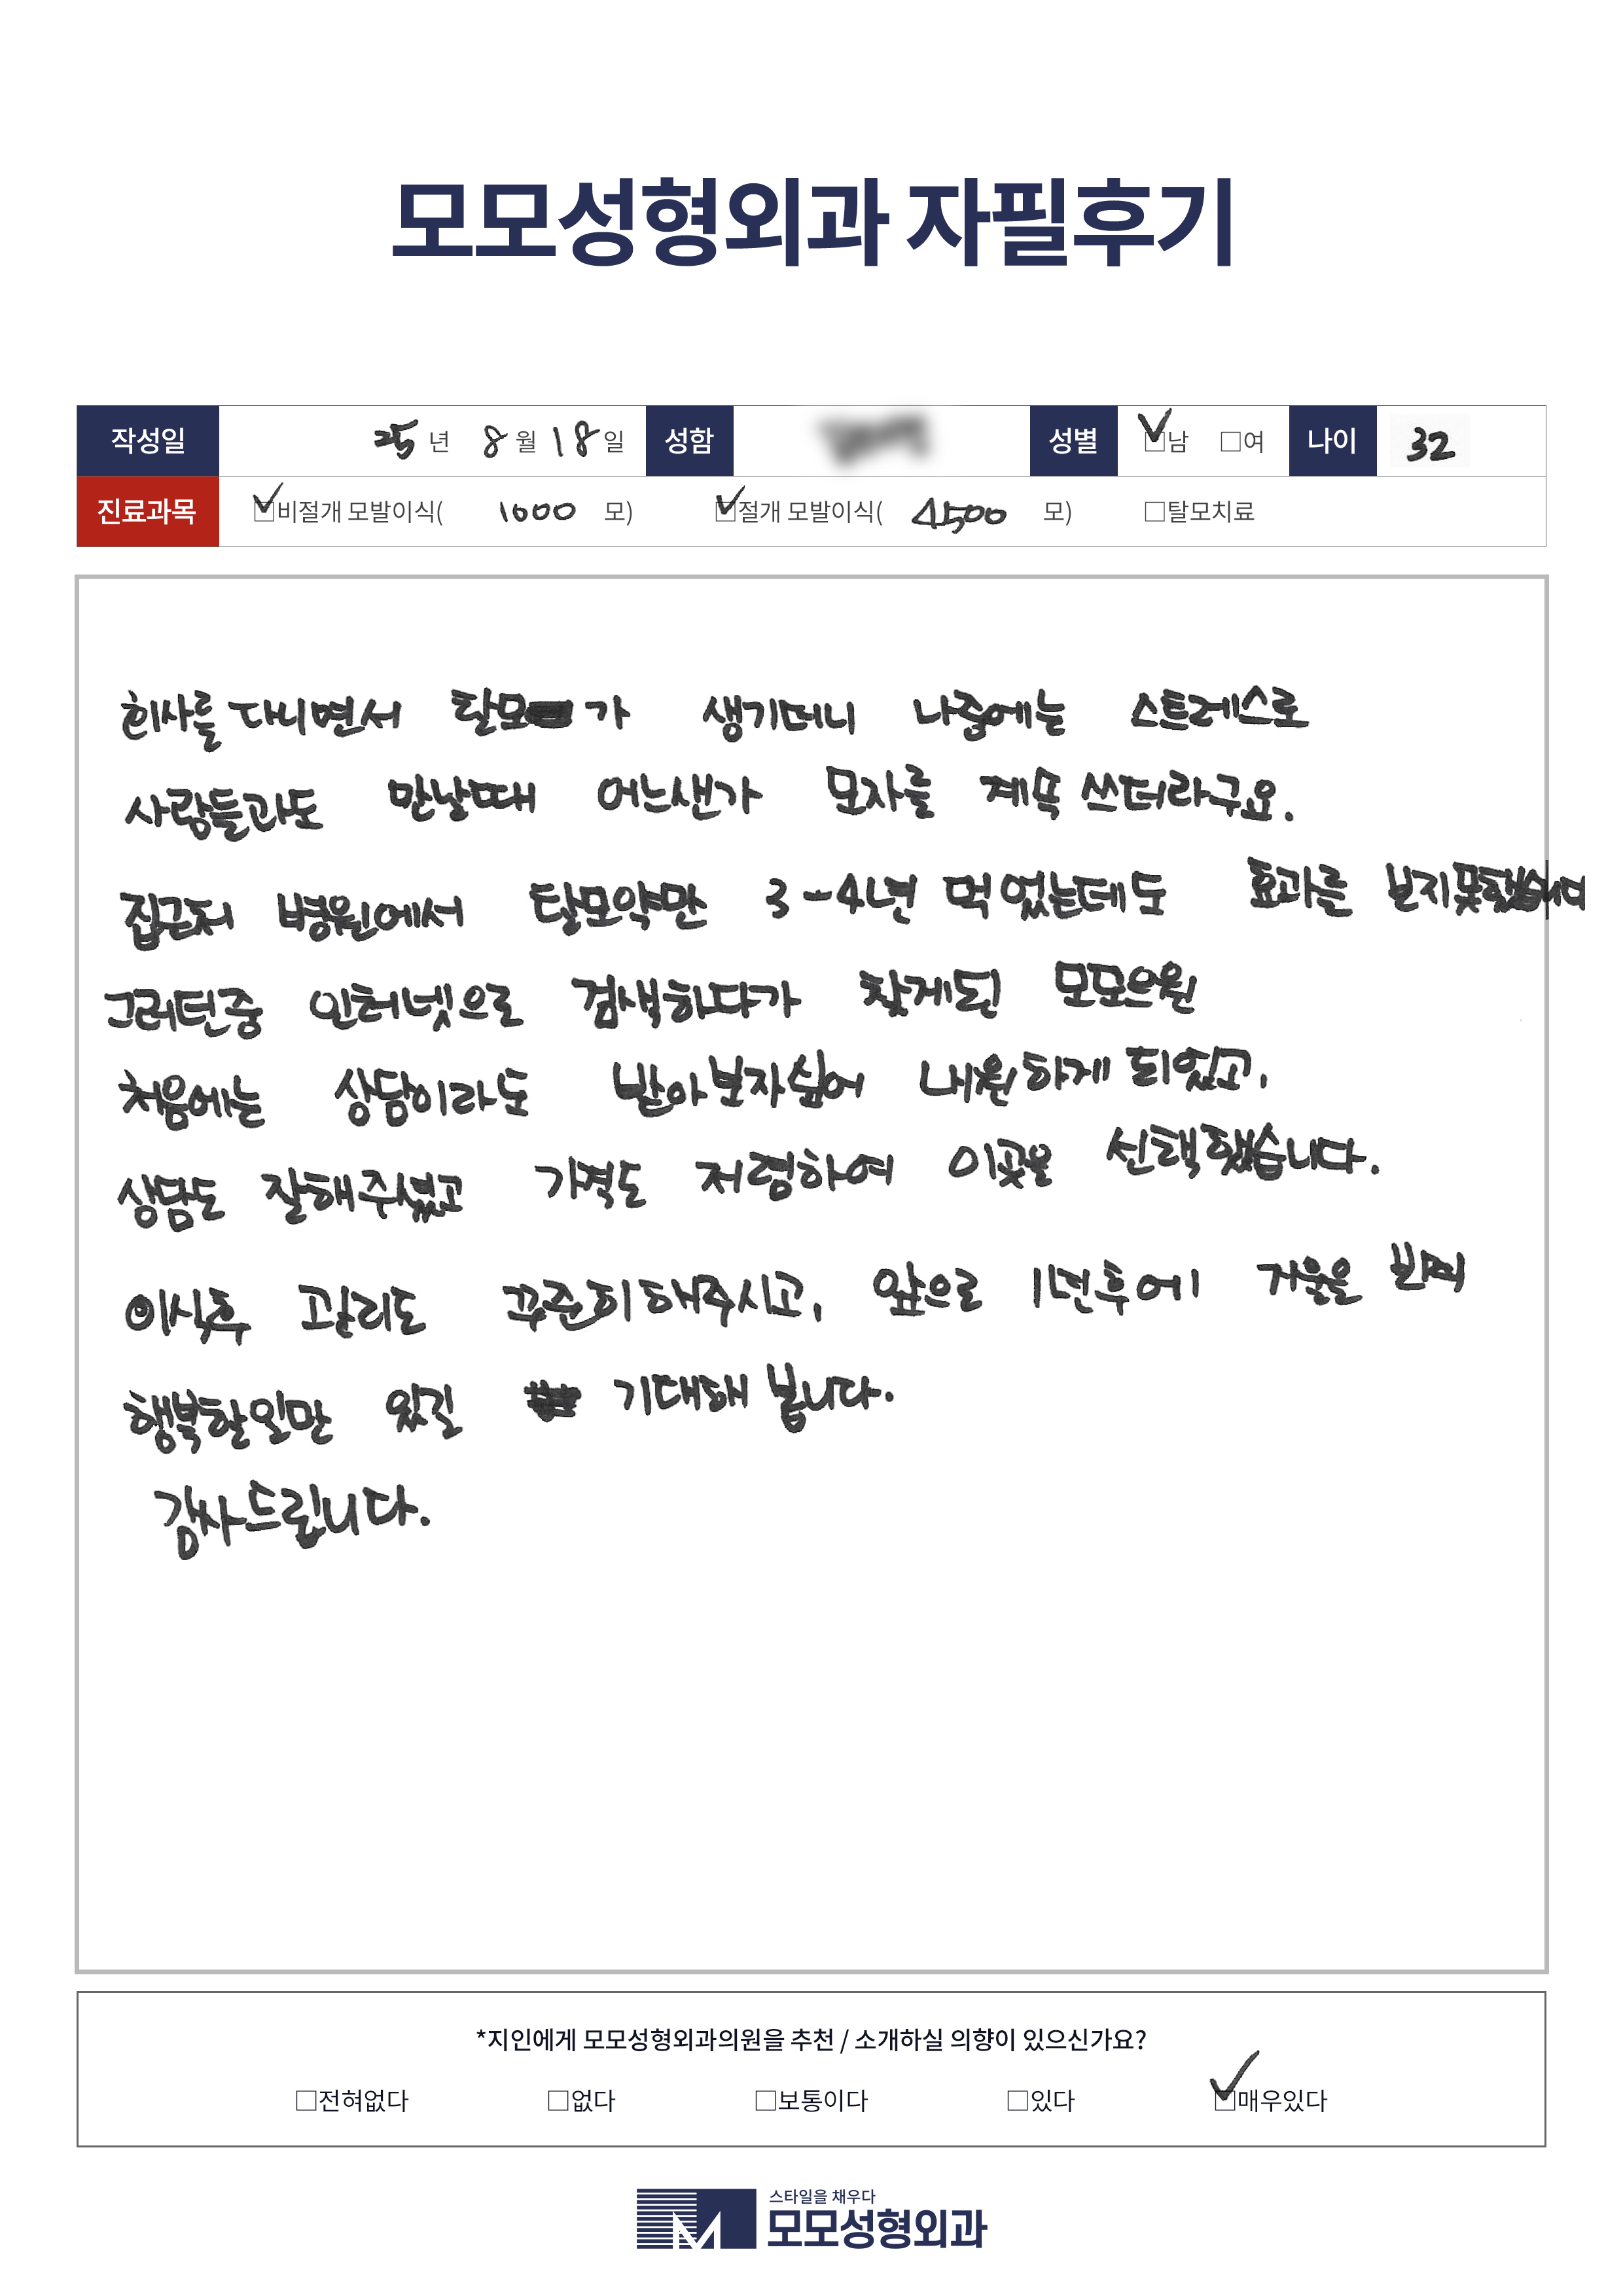 모모성형외과 자필후기
작성일 25 년 8 월 18 일 성함 성별 ☑남 □여 나이 32
진료과목 ☑비절개 모발이식( 1000 모) ☑절개 모발이식( 4500 모) □탈모치료
회사를 다니면서 탈모가 생기더니 나중에는 스트레스로
사람들과도 만날때 어느샌가 모자를 계속 쓰더라구요.
집근처 병원에서 탈모약만 3-4년 먹었는데도 효과를 보지못했습니다
그러던중 인터넷으로 검색하다가 찾게된 모모의원
처음에는 상담이라도 받아보자싶어 내원하게 되었고,
상담도 잘해주셨고 가격도 저렴하여 이곳을 선택했습니다.
이식후 관리도 꾸준히해주시고, 앞으로 1년후에 거울을 보며
행복할일만 있길 기대해 봅니다.
감사드립니다.
*지인에게 모모성형외과의원을 추천 / 소개하실 의향이 있으신가요?
□전혀없다 □없다 □보통이다 □있다 ☑매우있다
스타일을 채우다
모모성형외과